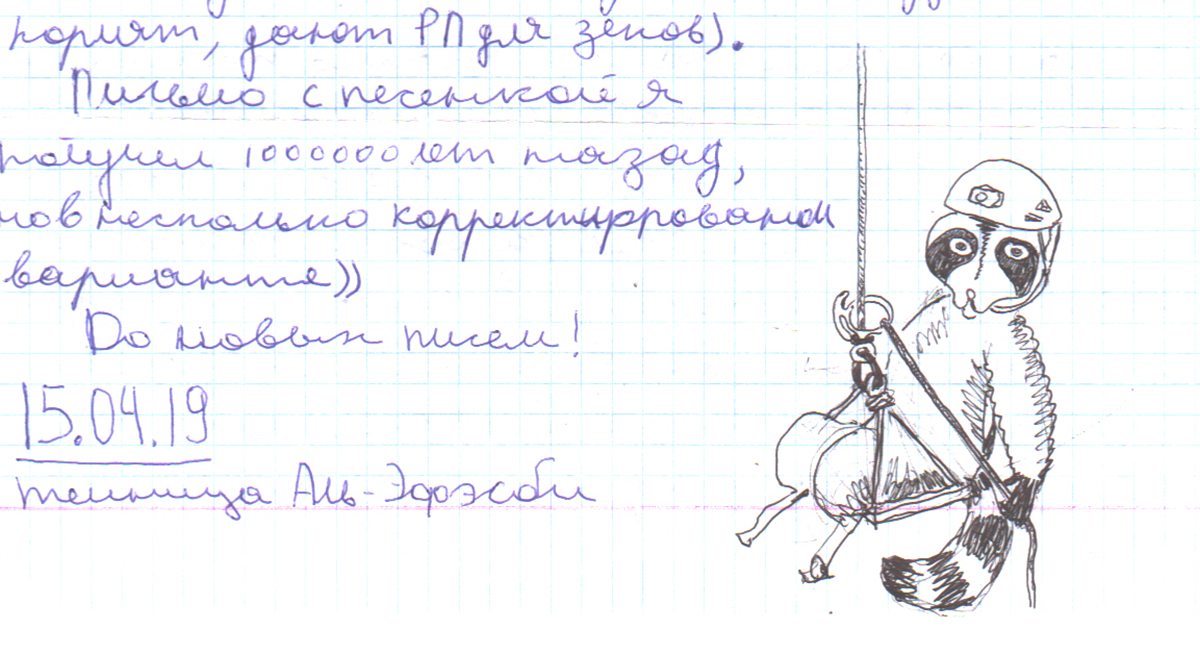 кормят, дают РП для зеков).
Письмо с песенкой я
получил 1000000 лет назад,
но в несколько корректированом
варианте))
До новых писем!
15.04.19
темница Аль-Эфэсби